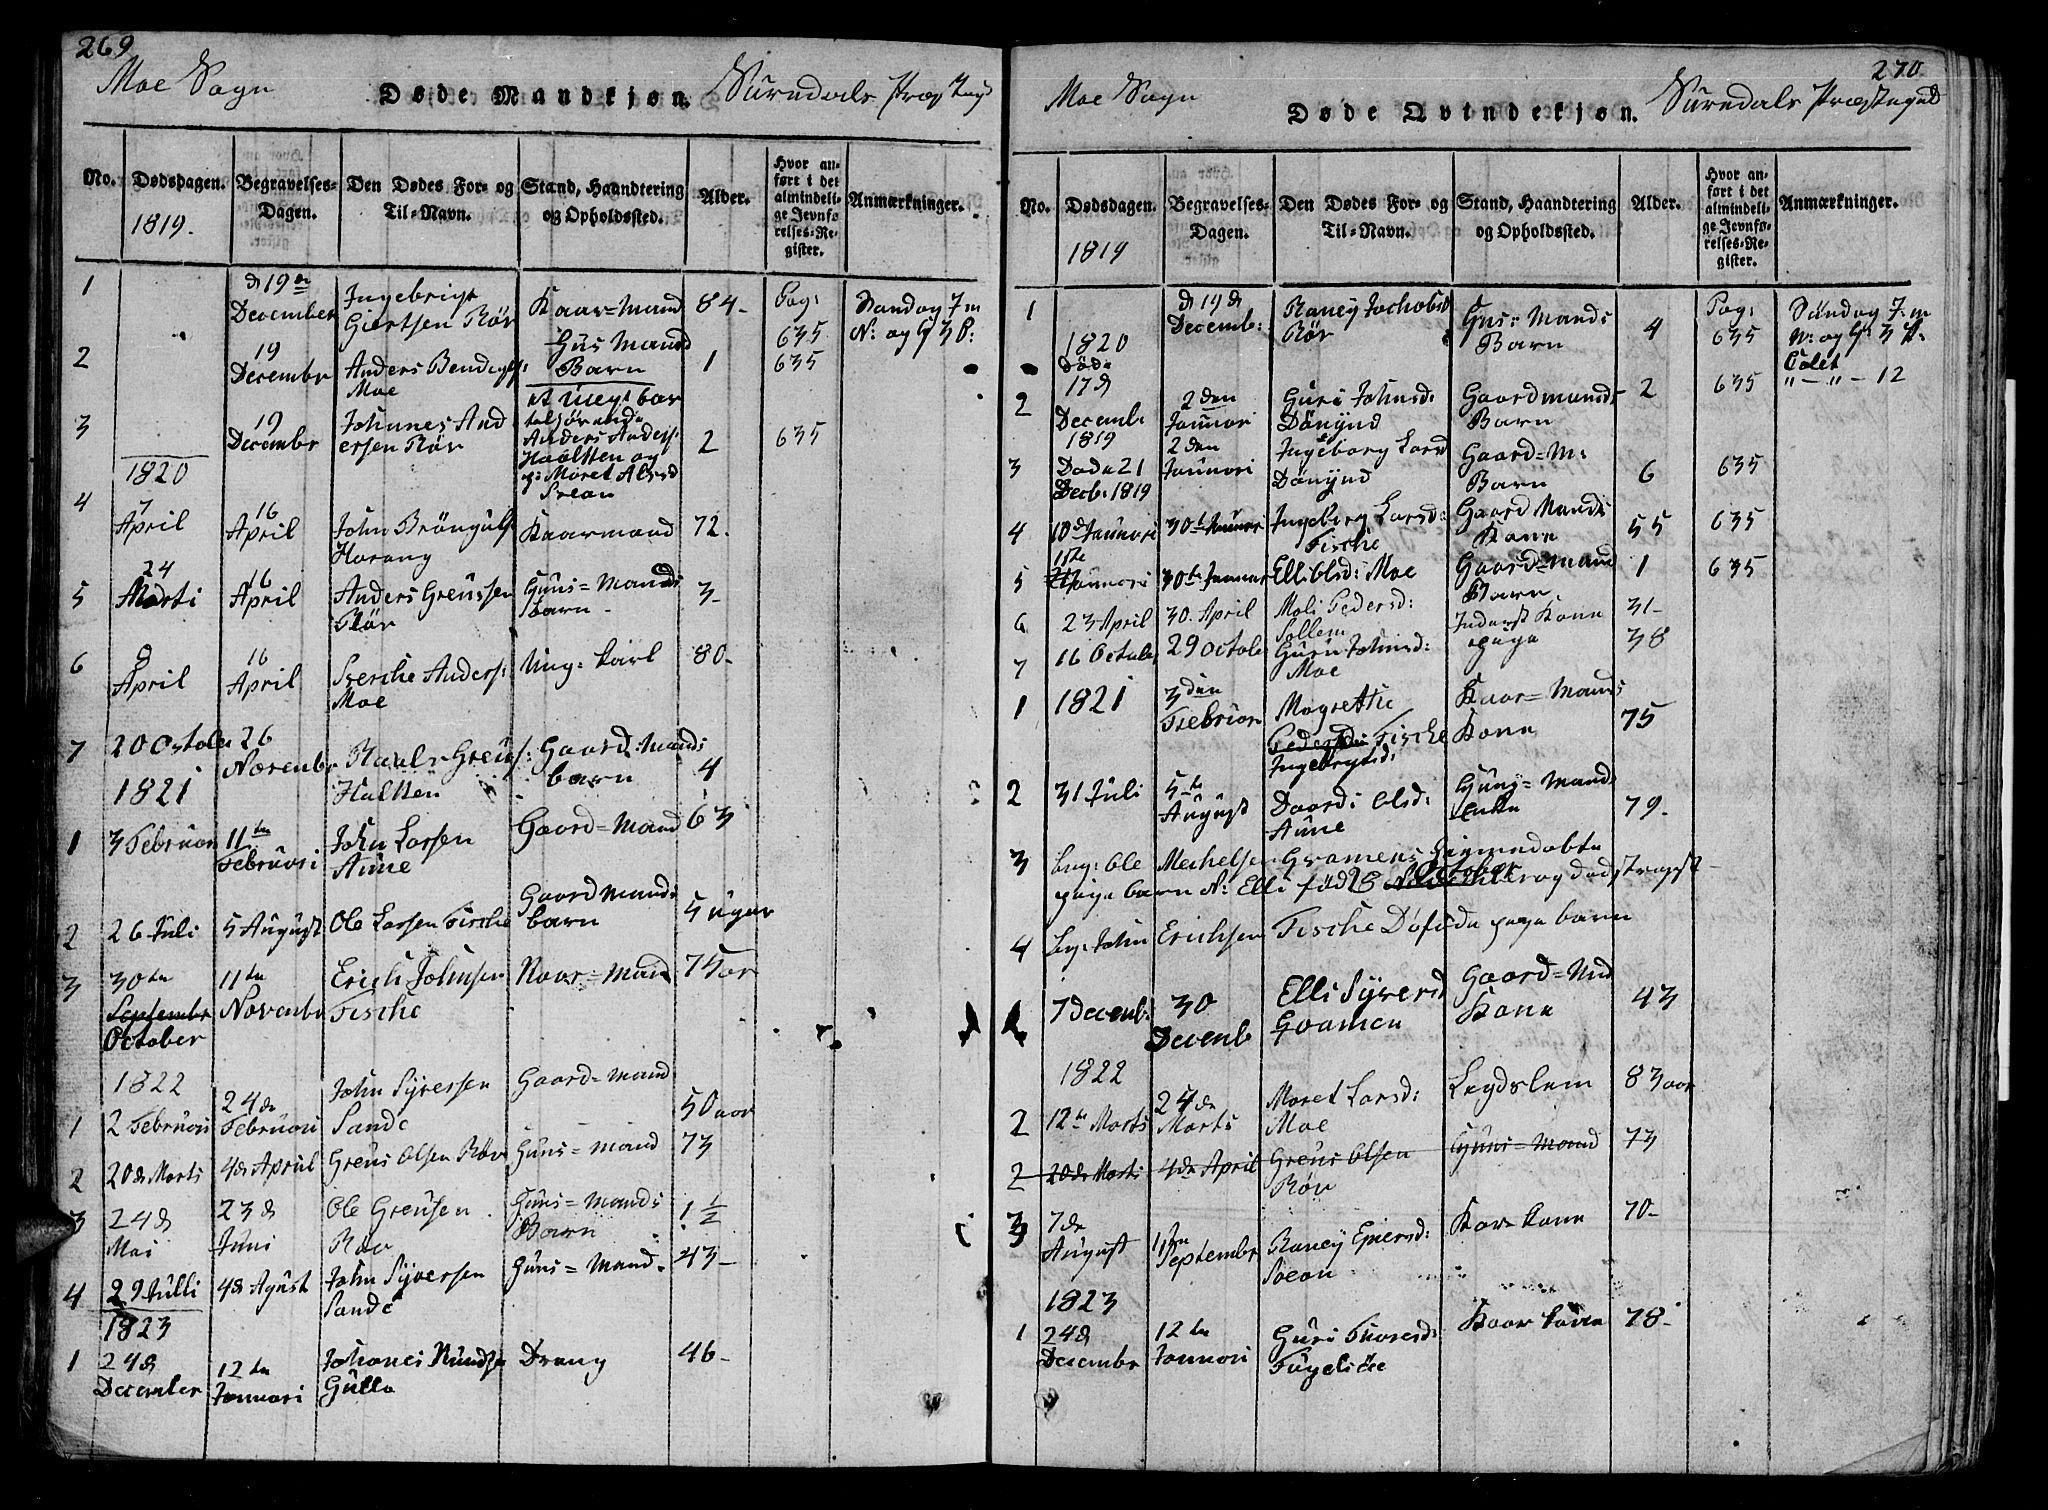 269
Moe Sogn
Døde Mandkjøn.
Surndals Præstegd
No.
Dødsdagen.
1819.
Begravelses-
Dagen.
Den Dødes For- og
Til-Navn.
Stand, Haandtering
og Opholdssted.
Alder.
Hvor an-
ført i det
almindeli-
ge Jevnfø
relses-Re-
gister.
Anmærkninger.
1 d 19de December Ingebrigt Giertsen Rør Kaar=Mand 84- Pag: 635 Søndag 7 m N: og G 3 P:
2 19 Decembr Anders Bendigts: Moe Huus Mands Barn 1 635
3 19 Decembr Johanes And
ersen Rør
Anders Anders:
Haaltten og
p: Maret Alvsd
Svean
2 635
1820
4 7 April 16 April John Brøngels Harang Kaarmand 72.
5 24 Marti 16 April Anders Greussen Rør Huus=Mands barn - 3-
6 9 April 16 April Sverche Anders: Moe Ung: karl 80-
7 20 October 26 Novembr Greus: Haltten Gaard:Mands barn 4
1821
1 3 Februar 11te Februari John Larsen Aune Gaard=Mand 63
2 26 Juli 5 August Ole Larsen Fische Gaard Mands barn 5 uger
3 30te Septembr October 11te Novembr Erich Johnsen Fische Kaar=Mand 75 aar
1822
1 2 Februari 24de Februari John Syversen Sande Gaard=Mand 50 aar
2 20de Marts 4de April Greus Olsen Rør Huus=mand 73
3 24de Mai 23de Juni Ole Greusen Rør Huus=Mands Barn 1 1/2
4 29 Julli 4de Agust John Syversen Sande Huus=Mand 43-
1823
1 24de December 12te Januari Johanes Knudsen Gulla Dreng 46-
270
Moe Sogn
Døde Qvindekjøn.
Surndals Præstegield
No.
Dødsdagen.
1819
Begravelses-
Dagen.
Den Dødes For- og
Til-Navn.
Stand, Haandtering
og Opholdssted.
Alder.
Hvor an-
ført i det
almindeli-
ge Jevnfø-
relses-Re-
gister.
Anmærkninger.
1 d 19de Decemb: Raney Jachobsd Rør Huus: Mands Barn 4 Pag: 635 Søndag 7: m N: og G: 3 P:
1820
2 Døde 17de Decembr 1819 2den Januari Guri Johnsd: Dønynd Gaardmands Barn 2 635 " - " - 12
3 Døde 21 Decb: 1819 2den Januari Ingeborg Larsd Dønynd Gaard=M: Barn 6 635
4 10de Januari 30te Januari Ingebrg Larsd: Fische Gaard Mands Kone 55 635
5 Januari 30te Januar Elli Olsd: Moe Gaardmands Barn 1 635
6 23 April 30. April Mali Pedersd: Sollem Inderst Kone 31-
7 16 October 29 October Guru Johnsd: Moe pige 38
1 1821 3den Februar Magrethe Pedersdr Fische Ingebrigtsd: Kaar=Mands Kone 75
2 31 Juli 5te August Daardi Olsd: Aune Huus=Mands Enke 79.
3 Ung: Ole Mechelsen Gramens Hiemmdøbte
pige barn N: Elli fød 28 October og død strax
4 Ung: John Erichsen Fische Døfødn pige barn
1 7 Decemb: 30 Decemb Elli Syversd Gramen Gaard=Md Kone 43
1822
2 12te Marts 24de Marts Maret Larsd: Moe Legdslem 83 aar
2 20de Marts 4de April Greus Olsen Rør Huus=Mand 73
3 7de August 1ste Septembr Raney Eversd: Svean Kar=kone 70-
1823
1 24de Decembr 12te Januari Guri Thoresd: Fugelsøe Kaar kone 78-